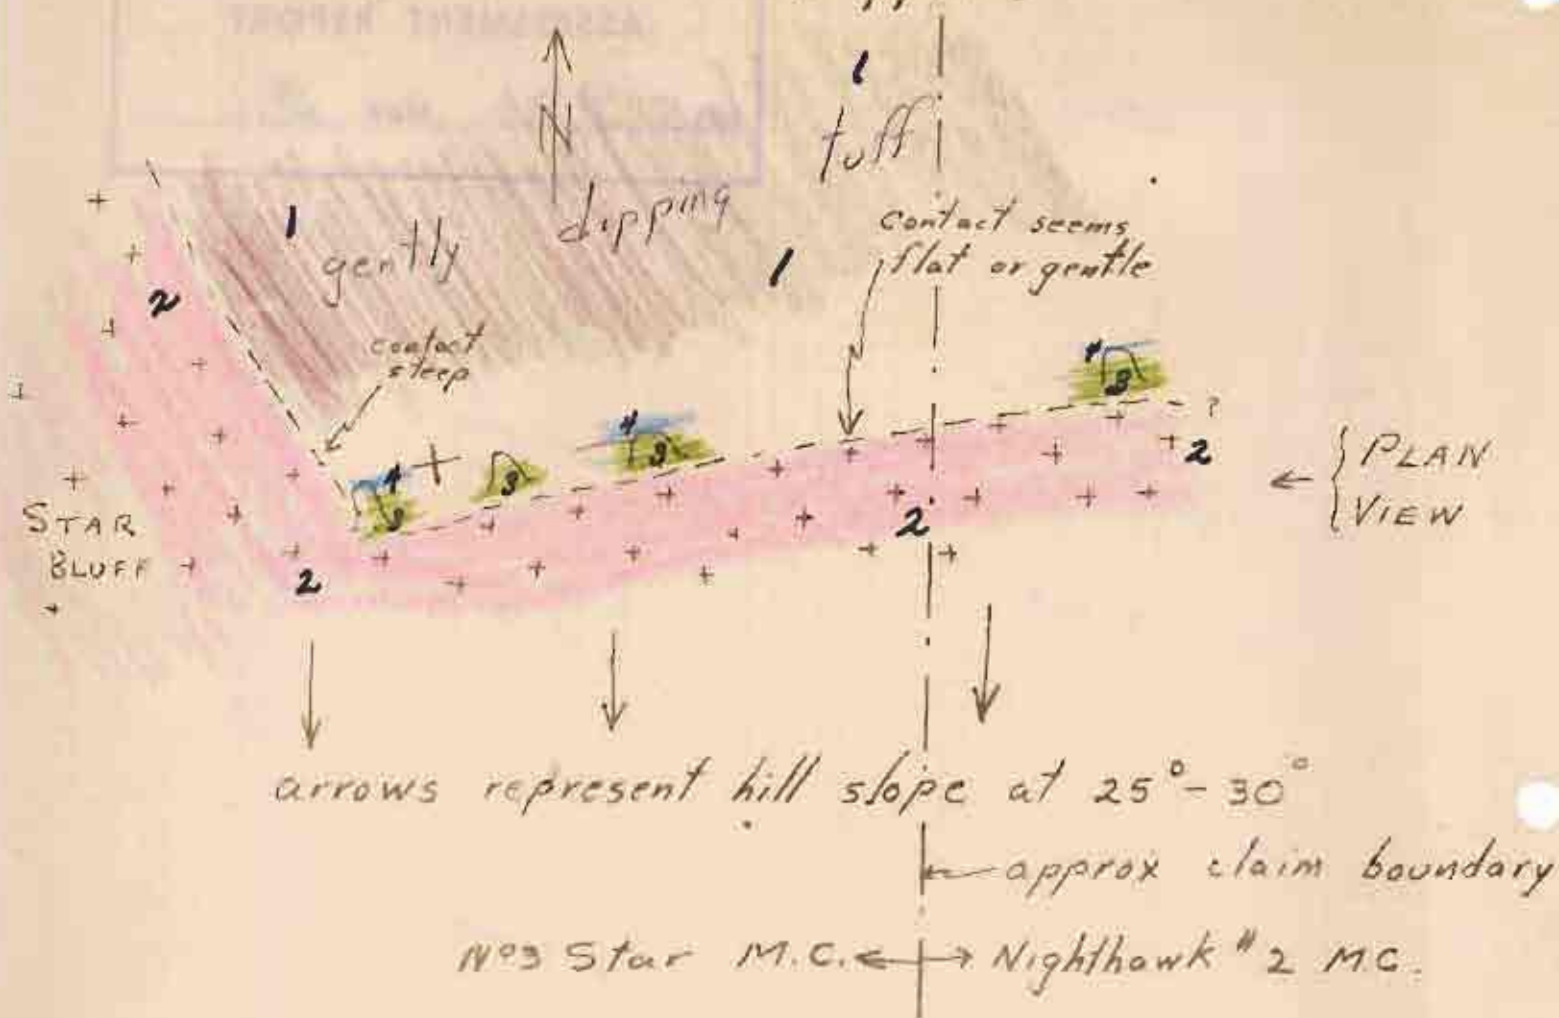 ASSESSMENT REPORT
N
1
tuff
1
gently
dipping
1
contact seems
flat or gentle
2
contact
steep
4
3
?
4
3
3
4
3
2
2
2
STAR
BLUFF
PLAN
VIEW
arrows represent hill slope at 25°-30°
approx claim boundary
Nº3 Star M.C. Nighthawk #2 M.C.